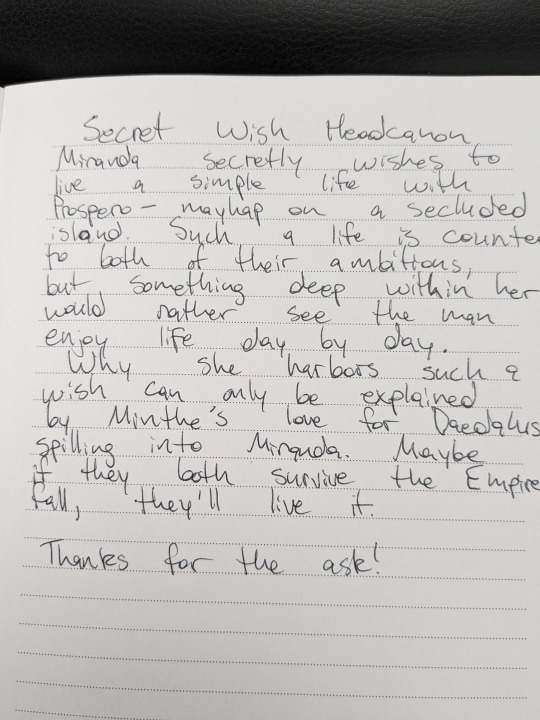 Secret Wish Headcanon
Miranda secretly wishes to
live a simple life with
Prospero - mayhap on a secluded
island. Such a life is counte
to both of their ambitions,
but something deep within her
would rather see the man
enjoy life day by day.
Why she harbors such a
wish can only be explained
by Minthe's love for Daedalus
spilling into Miranda. Maybe
if they both survive the Empire
fall, they'll live it.
Thanks for the ask!